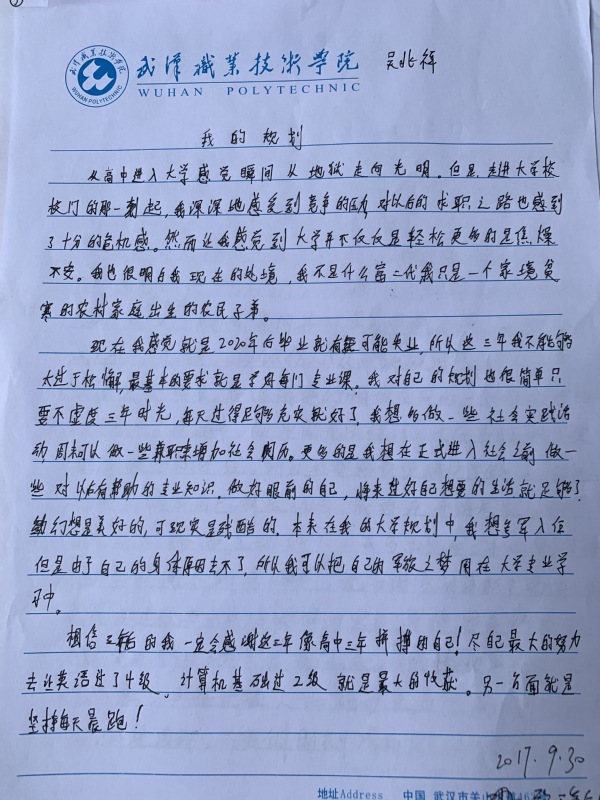 武汉职业技术学院
WUHAN POLYTECHNIC
武汉职业技术学院
WUHAN POLYTECHNIC
吴兆辉
我的规划
从高中进入大学感觉瞬间从地狱走向光明。但是,走进大学校
校门的那一刻起,我深深地感受到竞争的压力 对以后的求职之路也感到
了十分的危机感。然而让我感觉到大学并不仅仅是轻松更多的是焦燥
不安。我也很明白我现在的处境,我不是什么富二代我只是一个家境贫
寒的农村家庭出生的农民子弟。
现在我感觉就是2020年后毕业就有可能失业,所以这三年我不能够
太过于松懈,最基本的要求就是学好每门专业课。我对自己的规划也很简单只
要不虚度三年时光,每天过得足够充实就好了,我想多做一些社会实践活
动,周末可以做一些兼职来增加社会阅历。更多的是我想在正式进入社会之前做一
些对以后有帮助的专业知识。做好眼前的自己,将来过好自己想要的生活就足够了
幻想是美好的,可现实是残酷的。本来在我的大学规划中,我想参军入伍
但是由于自己的身体原因去不了,所以我可以把自己的军旅之梦用在大学专业学
习中。
相信三年后的我一定会感谢这三年像高中三年拼搏的自己!尽自己最大的努力
去让英语过了4级,计算机基础过2级 就是最大的收获。另一方面就是
坚持每天晨跑!
2017.9.30
地址Address 中国 武汉市关山